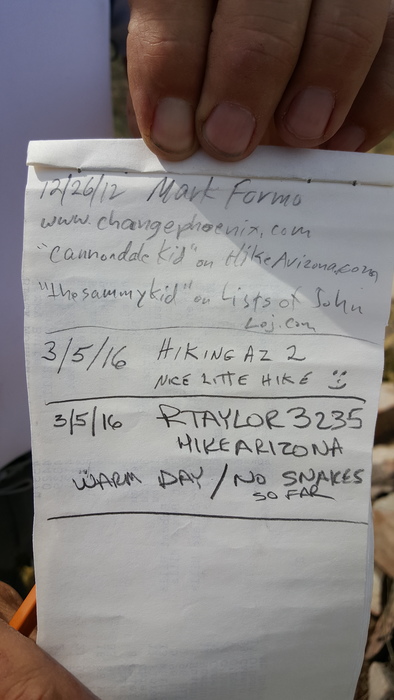 12/26/12 Mark Formo
www.changephoenix.com
"Cannondale Kid" on HikeArizona.com
"thesammykid" on Lists of John
Loj.com
3/5/16 HIKING AZ 2
NICE LITTE HIKE :)
3/5/16 RTAYLOR3235
HIKEARIZONA
WARM DAY / NO SNAKES
SO FAR